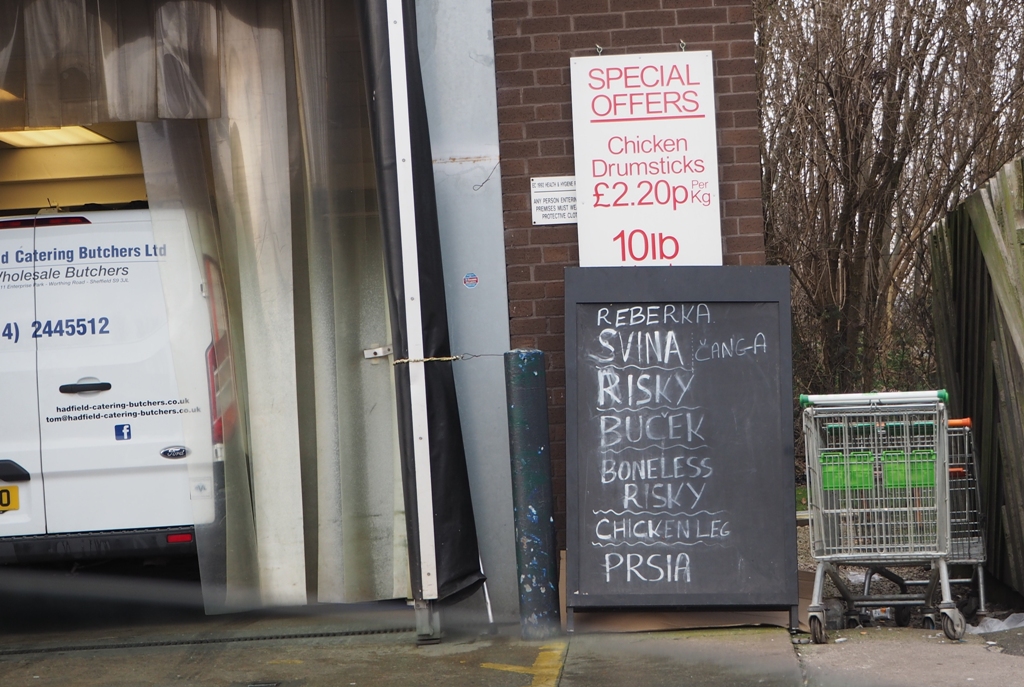 d Catering Butchers Ltd
Wholesale Butchers
4) 2445512
hadfield-catering-butchers.co.uk
tom@hadfield-catering-butchers.co.uk
f
Ford
O
ANY PERSON ENTERIN
PREMISES MUST WE
PROTECTIVE CLO
SPECIAL
OFFERS
Chicken
Drumsticks
£2.20p Per Kg
10lb
REBERKA
SVINA ČANGA
RISKY
BUČEK
BONELESS
RISKY
CHICKEN LEG
PRSIA